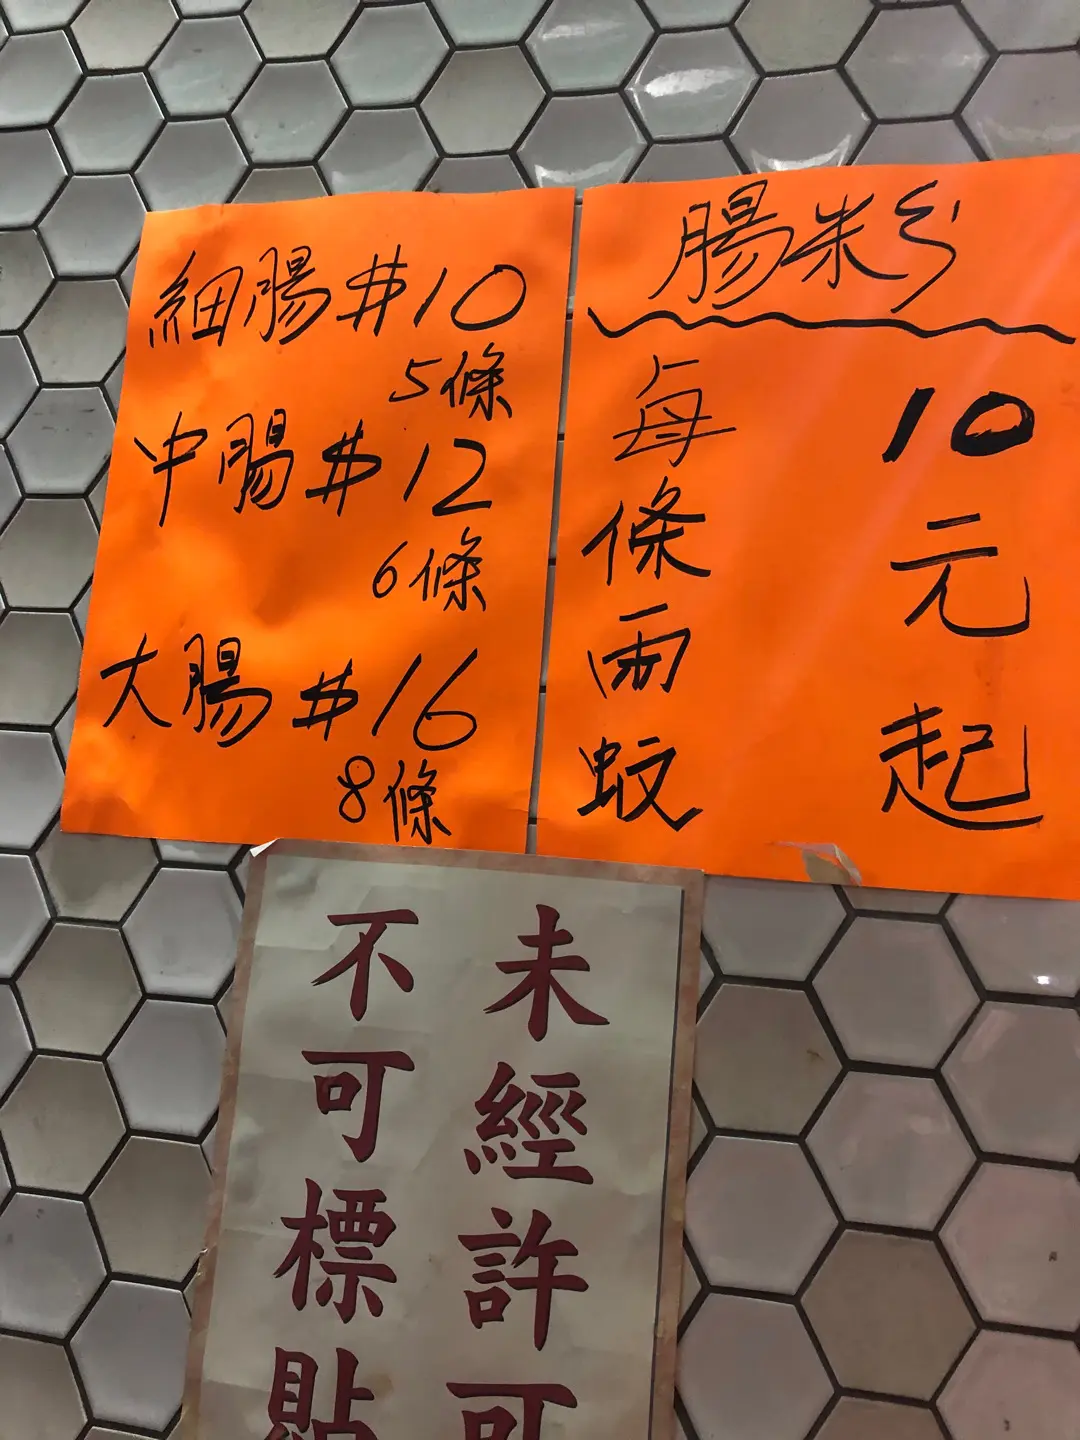 細腸 $10
5條
中腸 $12
6條
大腸 $16
8條
腸粉
每條兩蚊
10元起
未經許可
不可標貼